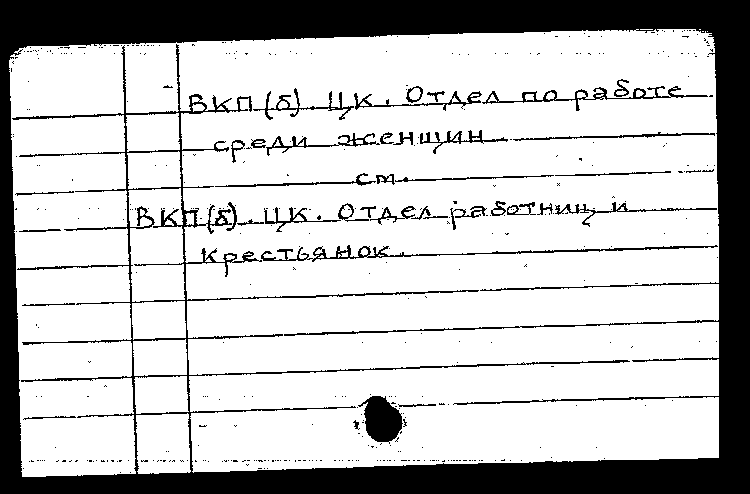 ВКП(б). ЦК. Отдел по работе
среди женщин
см.
ВКП(б). ЦК. Отдел работниц и
крестьянок.